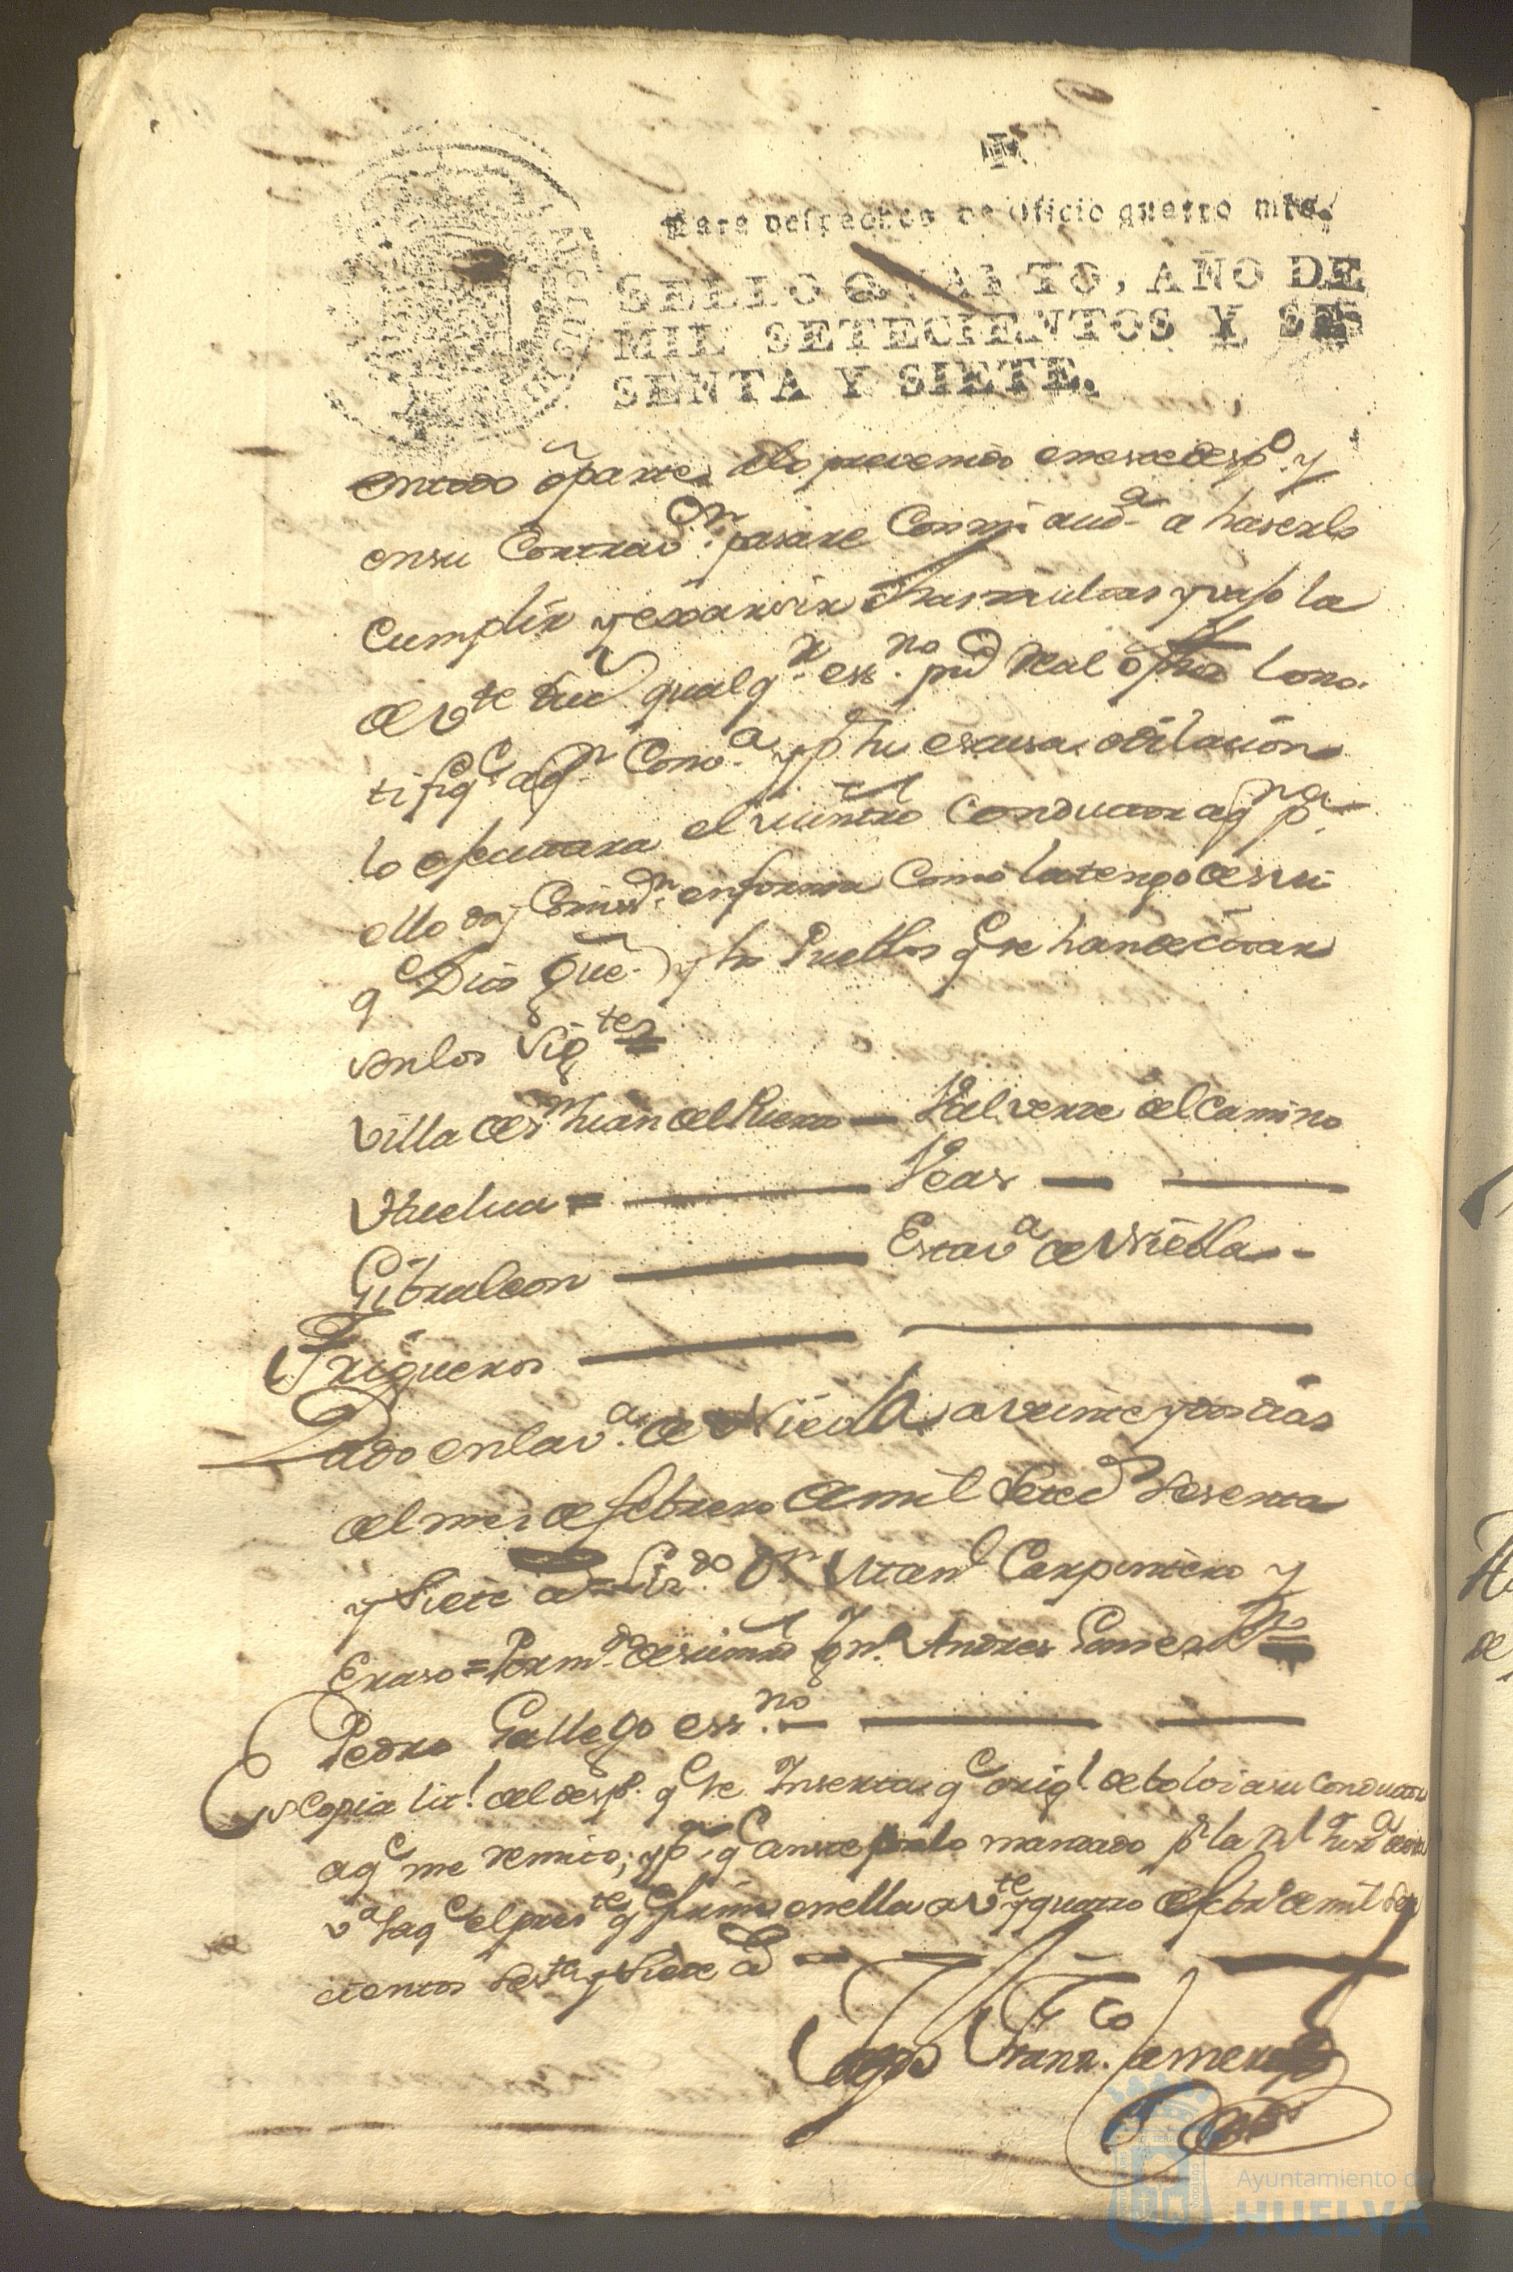 Para despachos de Oficio quatro mrs.
SELLO QVARTO, AÑO DE
MIL SETECIENTOS Y SE
SENTA Y SIETE.
entodo o parte delo prevenido eneste desp.o y
ensu Contrav.on pasare Con mi aud.a a haserlo
Cumplir y exsarsir dhas multas y vajo la
de v.te qualq.r ess.no pu.co Real lono
tifiq.e aq.n Conv.a y p.r su escusa o dilacion
lo ejecutara el Conductor aq.n p.a
ello doy Comis.n enforma Como latengo de su
q.e Dios gue. y los Pueblos q.e se han de citar
son los Sig.tes
Villa de S.n Juan del Puerto — Valverde del Camino
Huelva = — Veas —
Gibraleon — Esta v.a de Niebla —
Trigueros —
Dado en la v.a de Niebla a veinte y dos dias
del mes de febrero de mil Setec.s Sesenta
y Siete a.s = Liz.do D.n Man.l Carpintero y
Eraso = Por m.do de su mrd Andres
Pedro Gallego ess.no —
Es copia lit.l del desp.o q.e se Inserta q.e orig.l debolvi asu Conductor
aq.e me remito; y p.a q.e conste mandado p.r la R.l
v.a saq.e el pres.te q.e firmo en ella a v.te y quatro de feb.o de mil Sete
cientos Ses.ta y Siete a.s —
Fran.co
Ayuntamiento de
HUELVA